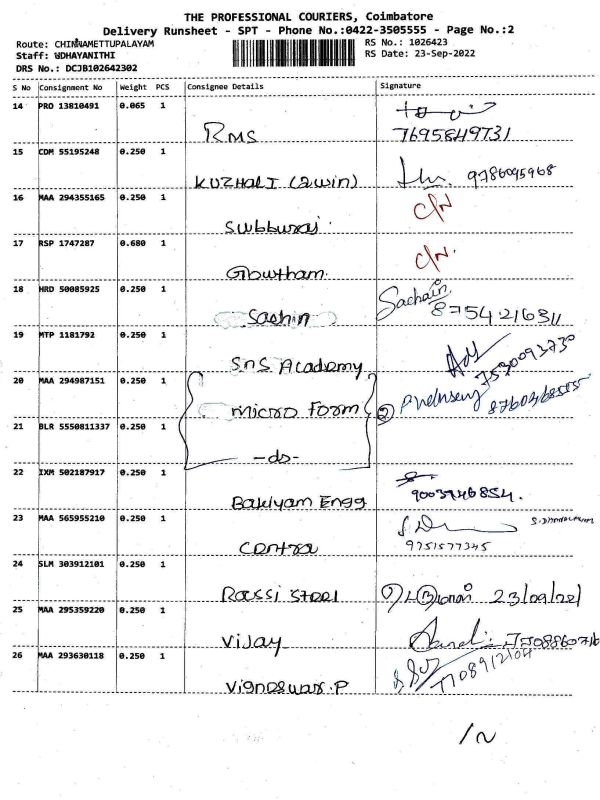 THE PROFESSIONAL COURIERS, Coimbatore
Delivery Runsheet - SPT - Phone No.:0422-3505555 - Page No.:2
Route: CHINNAMETTUPALAYAM RS No.: 1026423
Staff: UDHAYANITHI RS Date: 23-Sep-2022
DRS No.: DCJB102642302
S No Consignment No Weight PCS Consignee Details Signature
14 PRO 13810491 0.065 1
RMS 7695849731
15 CDM 55195248 0.250 1
KUZHALI (2win) 9786045968
16 MAA 294355165 0.250 1 C/N
Subburaj
17 RSP 1747287 0.680 1 C/N.
Gowtham
18 HRD 50085925 0.250 1 Sachain
Sachin 8754216311
19 MTP 1181792 0.250 1
SNS Academy 7530093730
20 MAA 294987151 0.250 1
Micro Form 2
21 BLR 5550811337 0.250 1
-do-
22 IXM 502187917 0.250 1
Bakiyam Engg 9003946854.
23 MAA 565955210 0.250 1
Contra 9751577345
24 SLM 303912101 0.250 1
Rassi Steel 23/09/22
25 MAA 295359220 0.250 1
Vijay
26 MAA 293630118 0.250 1
Vigneswar.P
/N